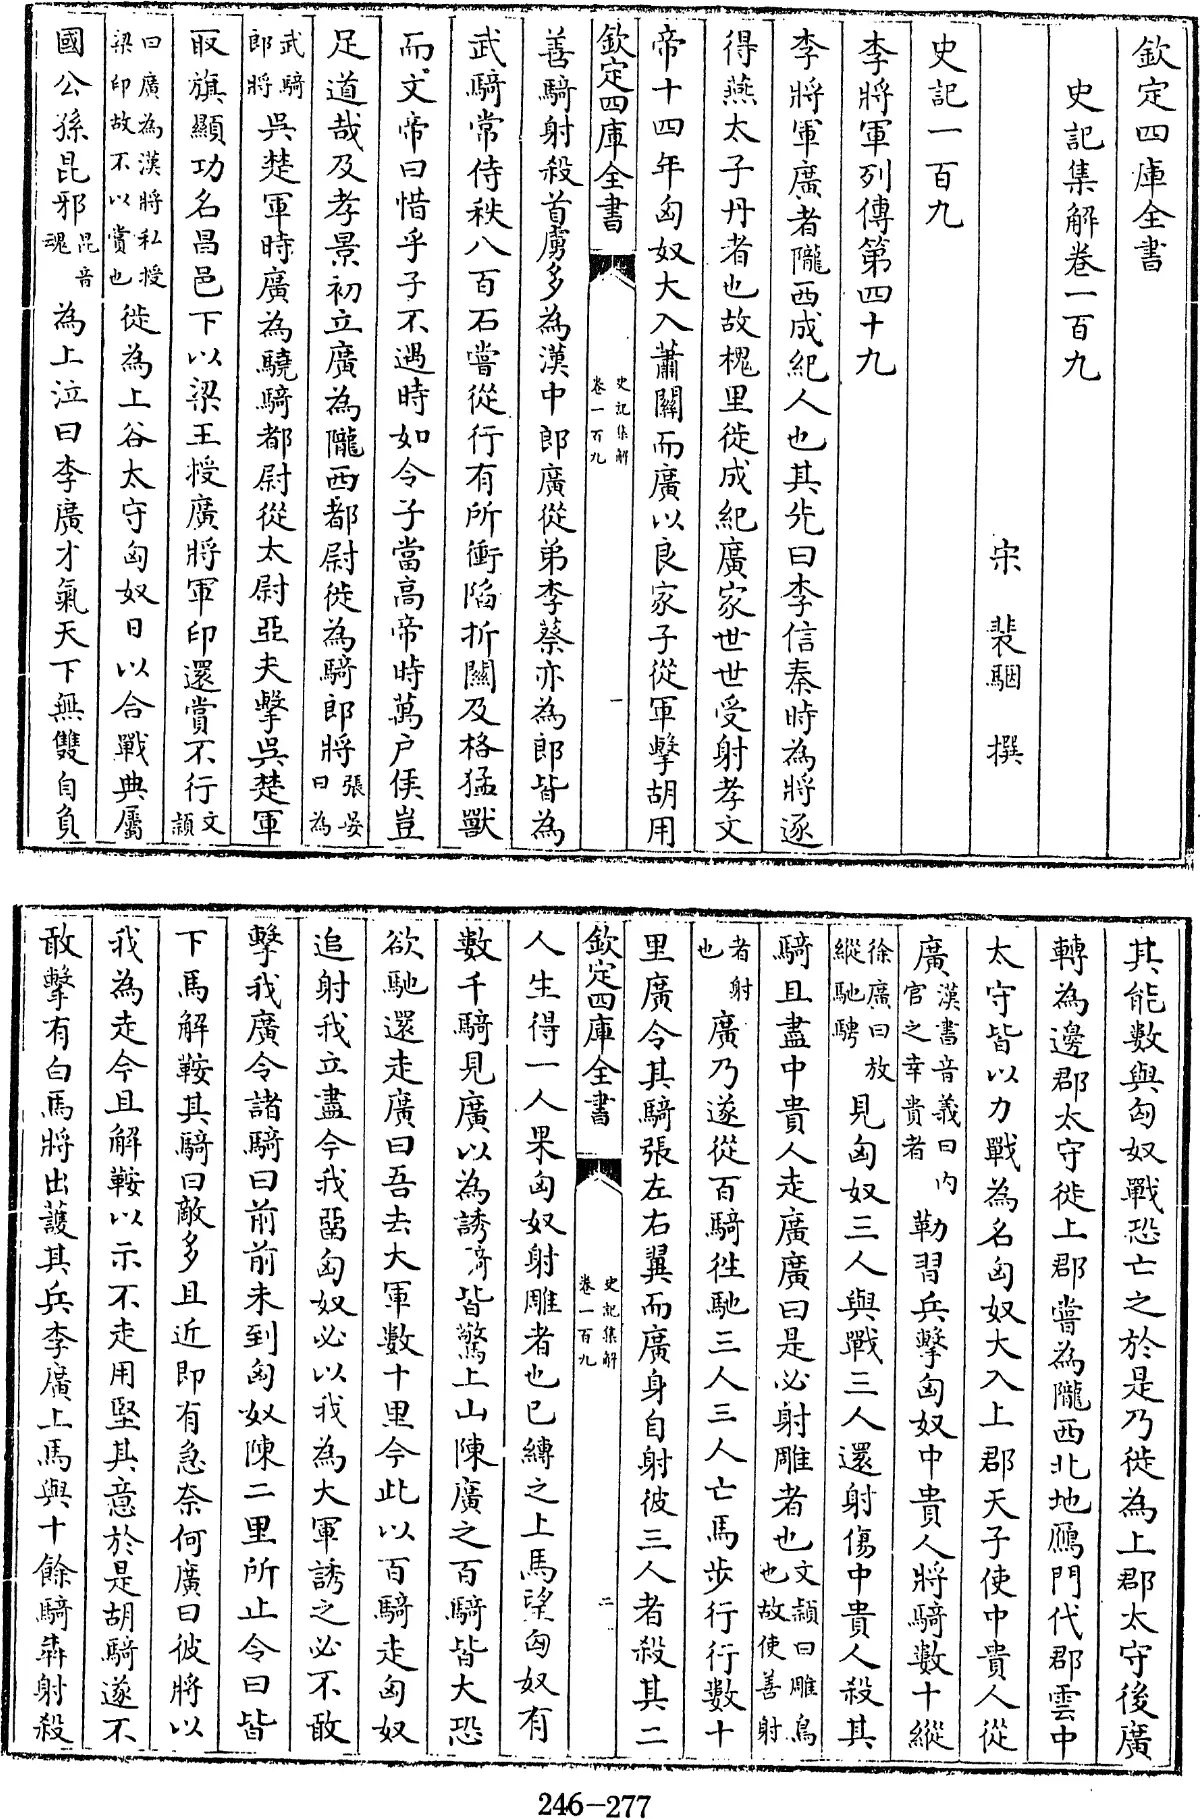 欽定四庫全書
史記集解卷一百九
宋 裴駰 撰
史記一百九
李將軍列傳第四十九
李將軍廣者隴西成紀人也其先曰李信秦時為將逐
得燕太子丹者也故槐里徙成紀廣家世世受射孝文
帝十四年匈奴大入蕭關而廣以良家子從軍擊胡用
欽定四庫全書
史記集解
卷一百九
一
善騎射殺首虜多為漢中郎廣從弟李蔡亦為郎皆為
武騎常侍秩八百石嘗從行有所衝陷折關及格猛獸
而文帝曰惜乎子不遇時如令子當高帝時萬户侯豈
足道哉及孝景初立廣為隴西都尉徙為騎郎將張晏
曰為
武騎
郎將吳楚軍時廣為驍騎都尉從太尉亞夫擊吳楚軍
取旗顯功名昌邑下以梁王授廣將軍印還賞不行文
頴
曰廣為漢將私授
梁印故不以賞也徙為上谷太守匈奴日以合戰典屬
國公孫昆邪昆音
魂為上泣曰李廣才氣天下無雙自負
其能數與匈奴戰恐亡之於是乃徙為上郡太守後廣
轉為邊郡太守徙上郡嘗為隴西北地鴈門代郡雲中
太守皆以力戰為名匈奴大入上郡天子使中貴人從
廣漢書音義曰内
官之幸貴者勒習兵擊匈奴中貴人將騎數十縱
徐廣曰放
縱馳騁見匈奴三人與戰三人還射傷中貴人殺其
騎且盡中貴人走廣廣曰是必射雕者也文頴曰雕鳥
也故使善射
者射
也廣乃遂從百騎徃馳三人三人亡馬步行行數十
里廣令其騎張左右翼而廣身自射彼三人者殺其二
欽定四庫全書
史記集解
卷一百九
二
人生得一人果匈奴射雕者也已縛之上馬望匈奴有
數千騎見廣以為誘騎皆驚上山陳廣之百騎皆大恐
欲馳還走廣曰吾去大軍數十里今此以百騎走匈奴
追射我立盡今我留匈奴必以我為大軍誘之必不敢
擊我廣令諸騎曰前前未到匈奴陳二里所止令曰皆
下馬解鞍其騎曰敵多且近即有急奈何廣曰彼將以
我為走今且解鞍以示不走用堅其意於是胡騎遂不
敢擊有白馬將出護其兵李廣上馬與十餘騎犇射殺
246-277